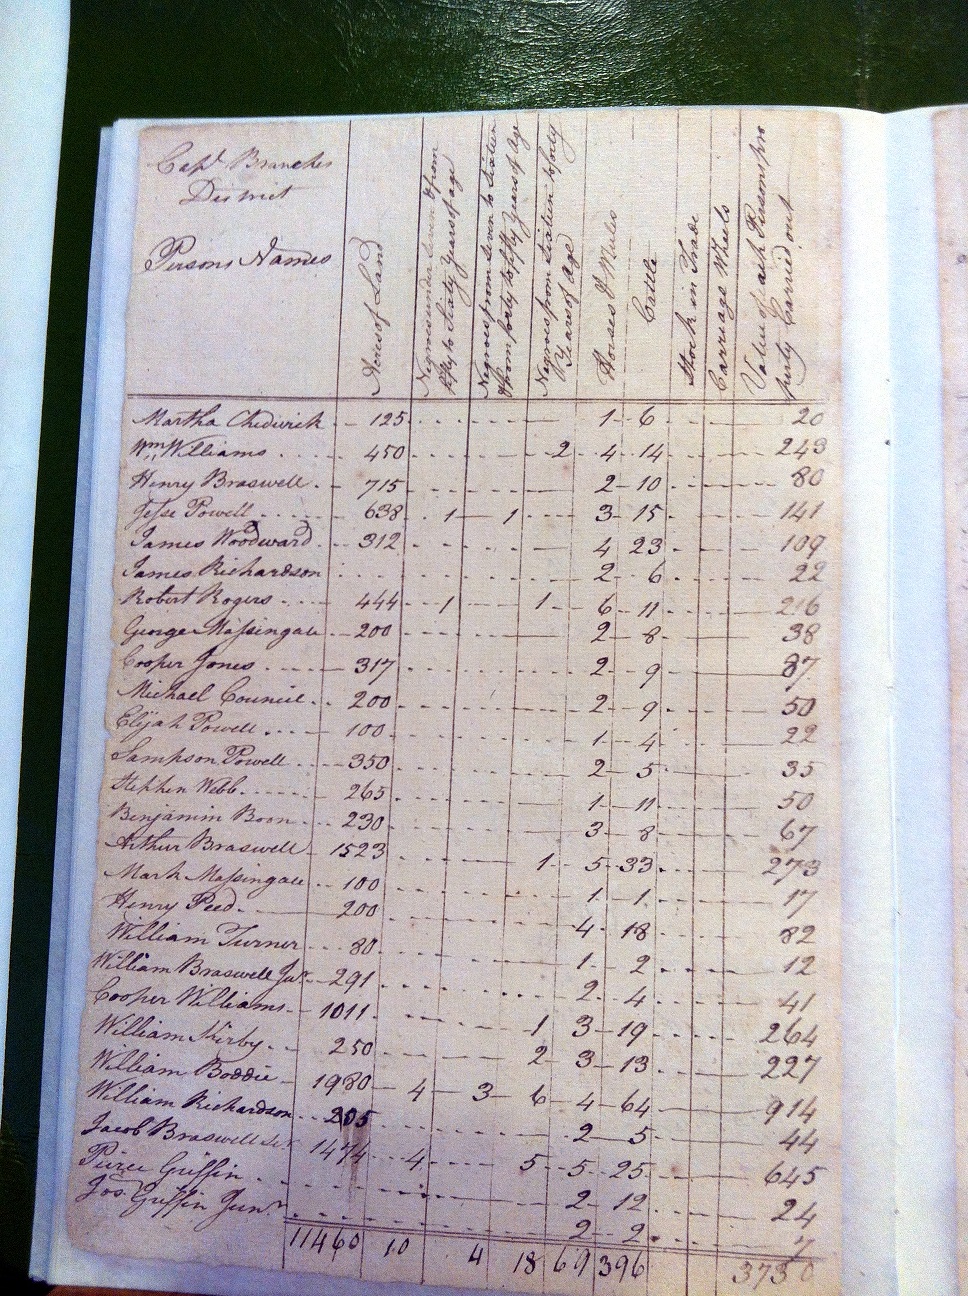 Capt Branches
District
Persons Names
Acres of Land
Negroes under seven & from
fifty to Sixty Years of age
Negroes from seven to Sixteen
& from forty to fifty Years of Age
Negroes from Sixteen to forty
Years of Age
Horses & Mules
Cattle
Stock in Trade
Carriage Wheels
Value of each Persons pro
perty Carried out
Martha Chedwick 125 1 6 20
Wm Williams 450 2 4 14 243
Henry Braswell 715 2 10 80
Jesse Powell 638 1 1 3 15 141
James Woodward 312 4 23 109
James Richardson 2 6 22
Robert Rogers 444 1 1 6 11 216
George Massingale 200 2 8 38
Cooper Jones 317 2 9 87
Michael Council 200 2 9 50
Elijah Powell 100 1 4 22
Sampson Powell 350 2 5 35
Stephen Webb 265 1 11 50
Benjamin Boon 230 3 8 67
Arthur Braswell 1523 1 5 33 273
Mark Massingale 100 1 1 17
Henry Peed 200 4 18 82
William Turner 80 1 2 12
William Braswell Jur 291 2 4 41
Cooper Williams 1011 1 3 19 264
William Kirby 250 2 3 13 227
William Boddie 1980 4 3 6 4 64 914
William Richardson 205 2 5 44
Jacob Braswell Sr 1474 4 5 5 25 645
Peirce Griffin 2 12 24
Jos Griffin Junr 2 2 7
11460 10 4 18 69 396 3730